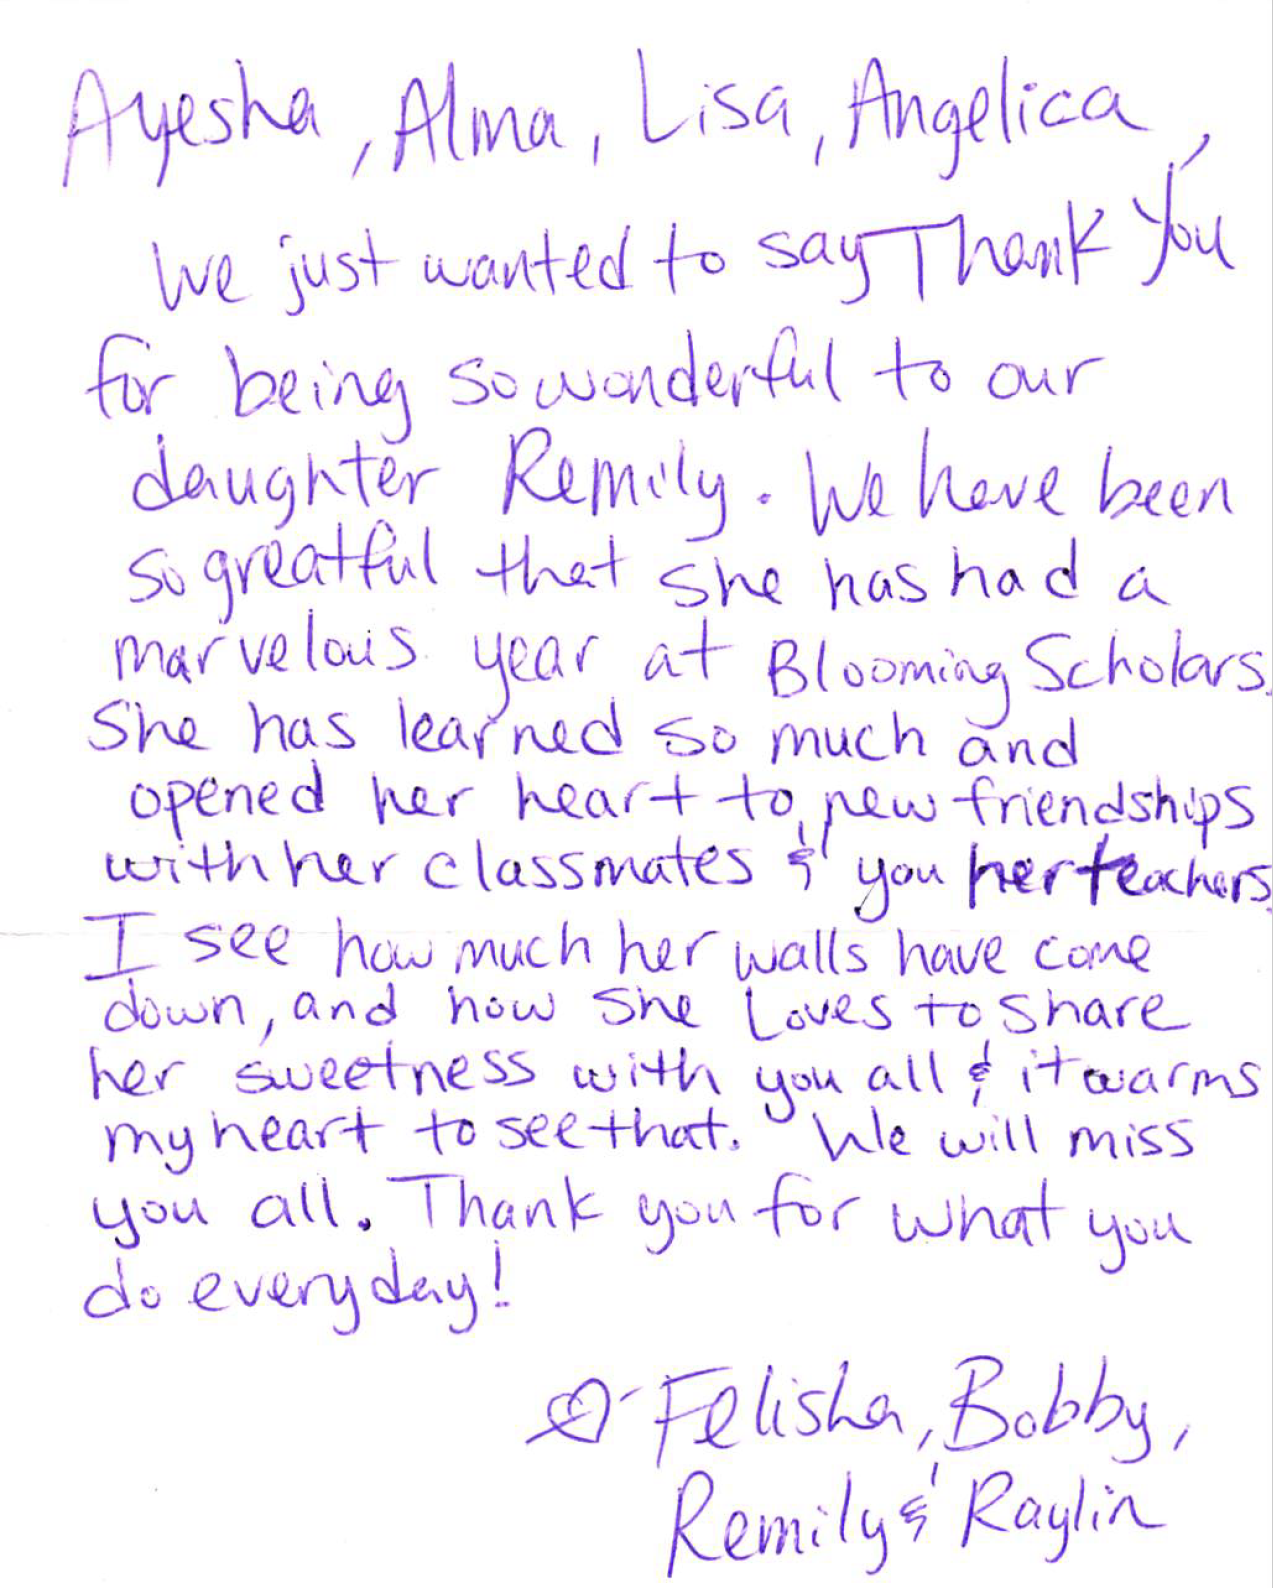 Ayesha, Alma, Lisa, Angelica,
We just wanted to say Thank You
for being so wonderful to our
daughter Remily. We have been
so greatful that she has had a
marvelous year at Blooming Scholars.
She has learned so much and
opened her heart to new friendships
with her classmates & you her teachers.
I see how much her walls have come
down, and how she Loves to share
her sweetness with you all & it warms
my heart to see that. We will miss
you all. Thank you for what you
do everyday!
Felisha, Bobby,
Remily & Raylin